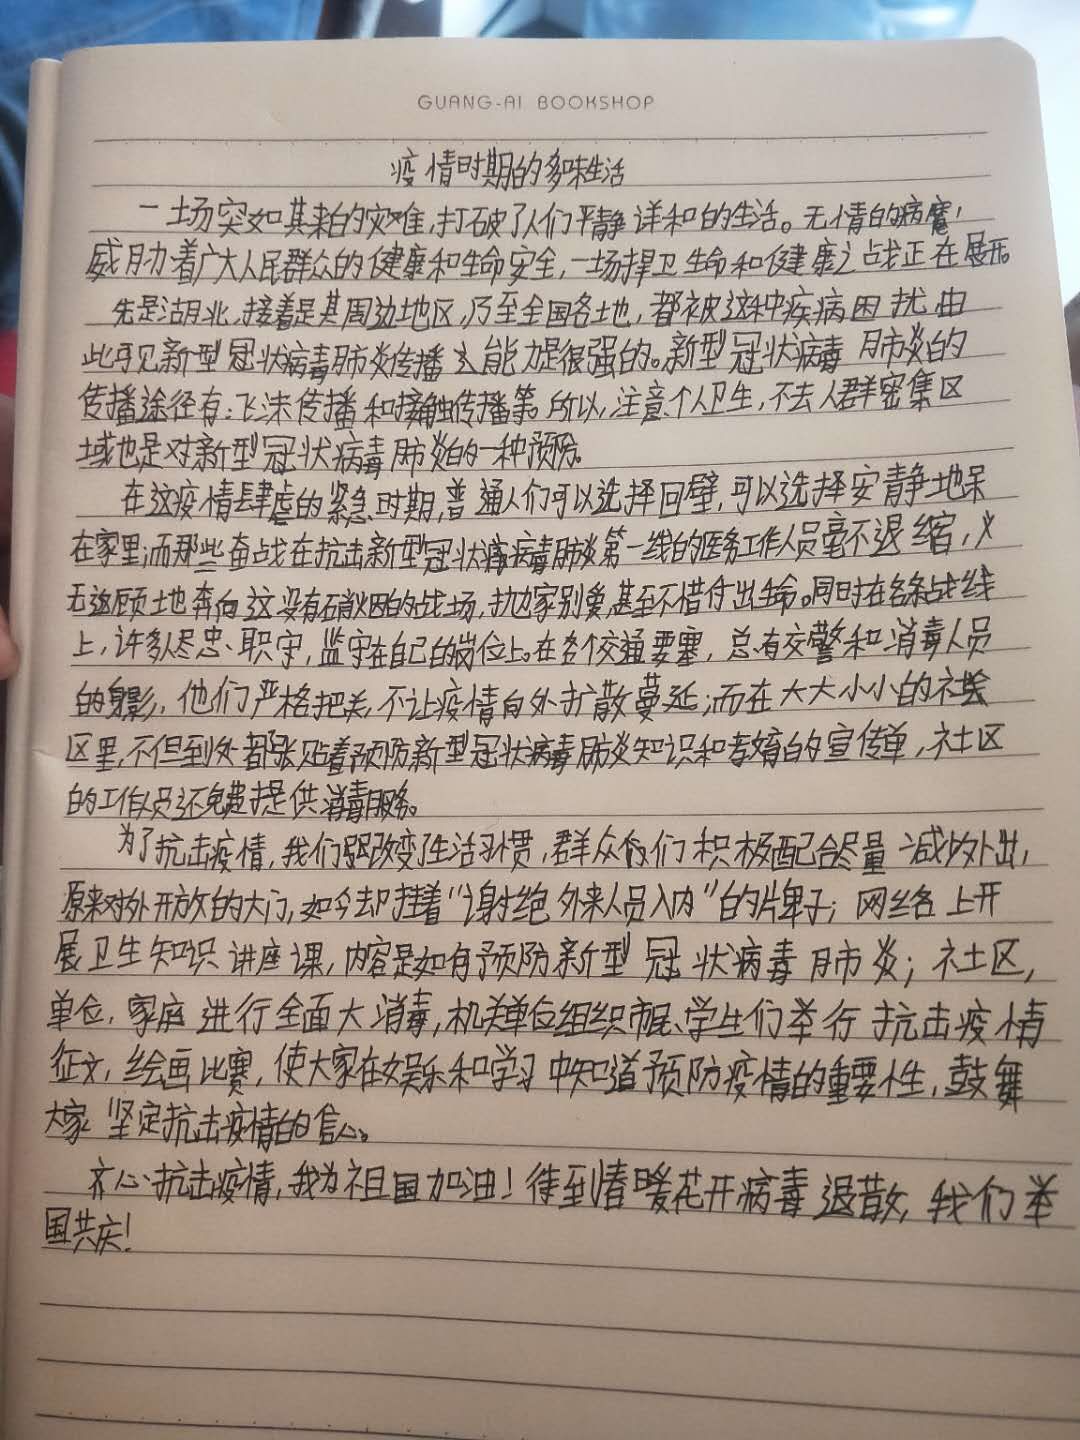 GUANG-AI BOOKSHOP
疫情时期的多味生活
一场突如其来的灾难,打破了人们平静详和的生活。无情的病魔,
威胁着广大人民群众的健康和生命安全,一场捍卫生命和健康之战正在展开。
先是湖北,接着是其周边地区,乃至全国各地,都被这种疾病困扰由
此可见新型冠状病毒肺炎传播能力是很强的。新型冠状病毒肺炎的
传播途径有:飞沫传播和接触传播等。所以,注意个人卫生,不去人群密集区
域也是对新型冠状病毒肺炎的一种预防。
在这疫情肆虐的紧急时期,普通人们可以选择回壁,可以选择安静地呆
在家里;而那些奋战在抗击新型冠状病毒肺炎第一线的医务工作人员毫不退缩,义
无返顾地奔向这没有硝烟的战场,抛家别爱,甚至不惜付出生命。同时在各条战线
上,许多人尽忠、职守,监守在自己的岗位上。在各个交通要塞,总有交警和消毒人员
的身影,他们严格把关,不让疫情向外扩散蔓延;而在大大小小的社
区里,不但到处都张贴着预防新型冠状病毒肺炎知识和教育的宣传单,社区
的工作人员还免费提供消毒服务。
为了抗击疫情,我们改变了生活习惯,群众们积极配合尽量减少外出,
原来对外开放的大门,如今却挂着“谢绝外来人员入内”的片牌子;网络上开
展卫生知识讲座课,内容是如何预防新型冠状病毒肺炎;社区,
单位,家庭进行全面大消毒,机关单位组织市民、学生们举行抗击疫情
征文,绘画比赛,使大家在娱乐和学习中知道预防疫情的重要性,鼓舞
大家坚定抗击疫情的信心。
齐心抗击疫情,我为祖国加油!待到春暖花开病毒退散,我们举
国共庆!